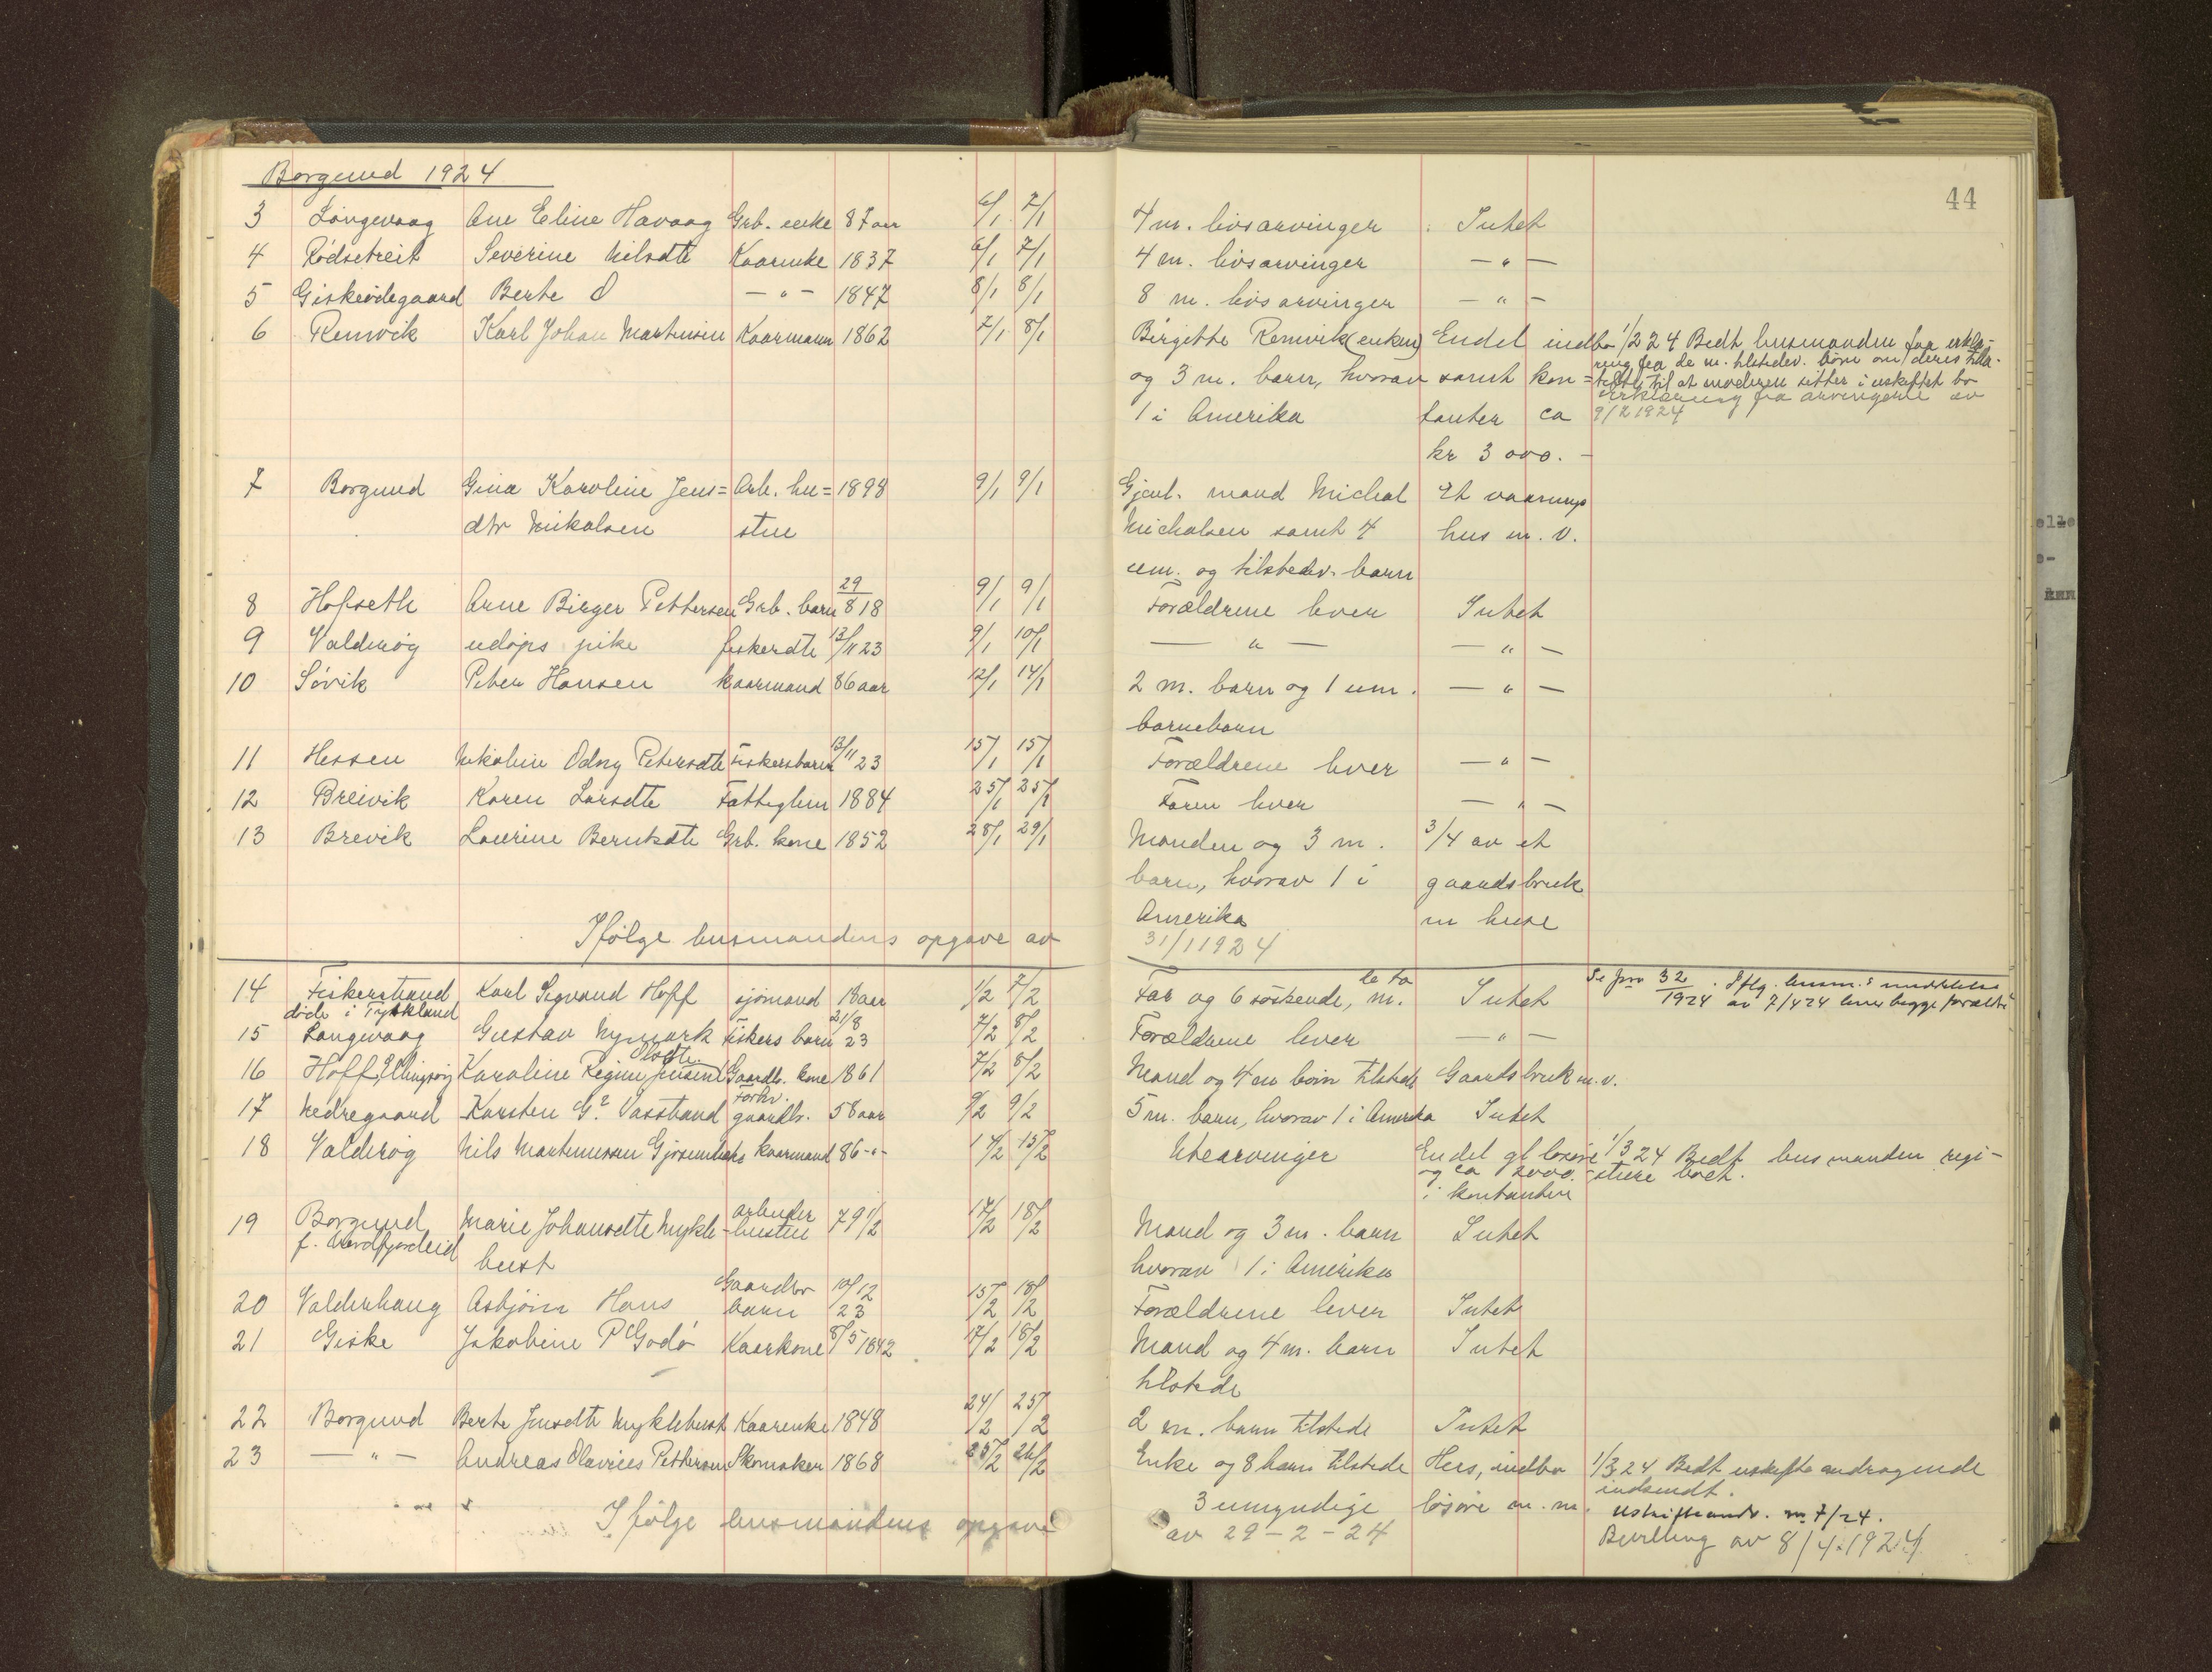 Borgund 1924
44
3 Langevaag Ane Eline Havaag Grb. enke 87 aar 6/1 7/1 4 m. livsarvinger Intet
4 Rødsetreit Severine Nilsdtr Kaarenke 1837 6/1 7/1 4 m. livsarvinger — " —
5 Giskeødegaard Berte O — " — 1847 8/1 8/1 8 m. livsarvinger — " —
6 Remvik Karl Johan Martinsen Kaarmann 1862 7/1 8/1 Birgitte Remvik (enken) Endel indbo 1/2 24 Bedt lensmanden faa erklæ-
ring fra de m. tilstedev. børn om deres tilla-
og 3 m. barn, hvorav samt kon= telse til at moderen sitter i uskiftet bo
Erklæring fra arvingerne av
1 i Amerika tanter ca 9/2 1924
kr 3000.-
7 Borgund Gina Karoline Jens= Arb. hu= 1898 9/1 9/1 Gjenl. mand Michal Et vaanings
dtr Mikalsen stru Michalsen samt 4 hus m. v.
um. og tilstedev. barn
29
8 Hofseth Arne Birger Pettersen Grb. barn 8 18 9/1 9/1 Forældrene lever Intet
9 Valderøy udøpt pike fiskerdtr 13/11 23 9/1 10/1 — " — — " —
10 Søvik Peter Hansen kaarmand 86 aar 12/1 14/1 2 m. barn og 1 um. — " —
barnebarn
11 Hessen Nikoline Odny Petersdtr Fiskersbarn 13/11 23 15/1 15/1 Forældrene lever — " —
12 Breivik Karen Larsdtr Fattiglem 1884 25/1 25/1 Faren lever — " —
13 Brevik Laurine Berntsdtr Grb. kone 1852 28/1 29/1 Manden og 3 m. 3/4 av et
barn, hvorav 1 i gaardsbruk
Amerika m huse
Ifølge lensmandens opgave av 31/1 1924
14 Fiskerstrand Karl Sigvand Hoff sjømand 18 aar 1/2 7/2 Far og 6 søskende, m. Intet Se jnr 32/1924. Iflg. lensm.s meddelelse
døde i Tyskland av 7/4 24 lever begge forældre
15 Langevaag Gustav Nymark Fiskers barn 21/8 23 7/2 8/2 Forældrene lever — " —
Olsdtr.
16 Hoff, Ellingsøy Karoline Regine Jensen Gaardb. kone 1861 7/2 8/2 Mand og 4 m børn tilstede Gaardsbruk m. v.
Forhv.
17 Nedregaard Karsten G? Vasstrand gaardb. 58 aar 9/2 9/2 5 m. barn, hvorav 1 i Amerika Intet
18 Valderøy Nils Martinussen kaarmand 86 -"- 14/2 15/2 Utearvinger Endel gl løsøre 1/3 24 Bedt lensmanden regi-
og ca 2000.- strere boet.
i kontanter
arbeider
19 Borgund Marie Johansdtr Mykle- hustru 79 1/2 17/2 18/2 Mand og 3 m. barn Intet
f. Nordfjordeid bust hvorav 1 i Amerika
20 Valderhaug Asbjørn Hans Gaardbr barn 10/12 23 15/2 18/2 Forældrene lever Intet
21 Giske Jakobine P Godø Kaarkone 8/5 1842 17/2 18/2 Mand og 4 m. barn Intet
tilstede
22 Borgund Berte Jensdtr Myklebust Kaarenke 1848 24/2 25/2 2 m. barn tilstede Intet
23 — " — Andreas Olavius Pettersen Skomaker 1868 25/2 26/2 Enke og 8 barn tilstede Hus, indbo 1/3 24 Bedt uskifteandragende
indsendt.
3 umyndige løsøre m. m. Uskifteandr. nr 7/24.
Ifølge lensmandens opgave av 29-2-24
Bevilling av 8/4.1924